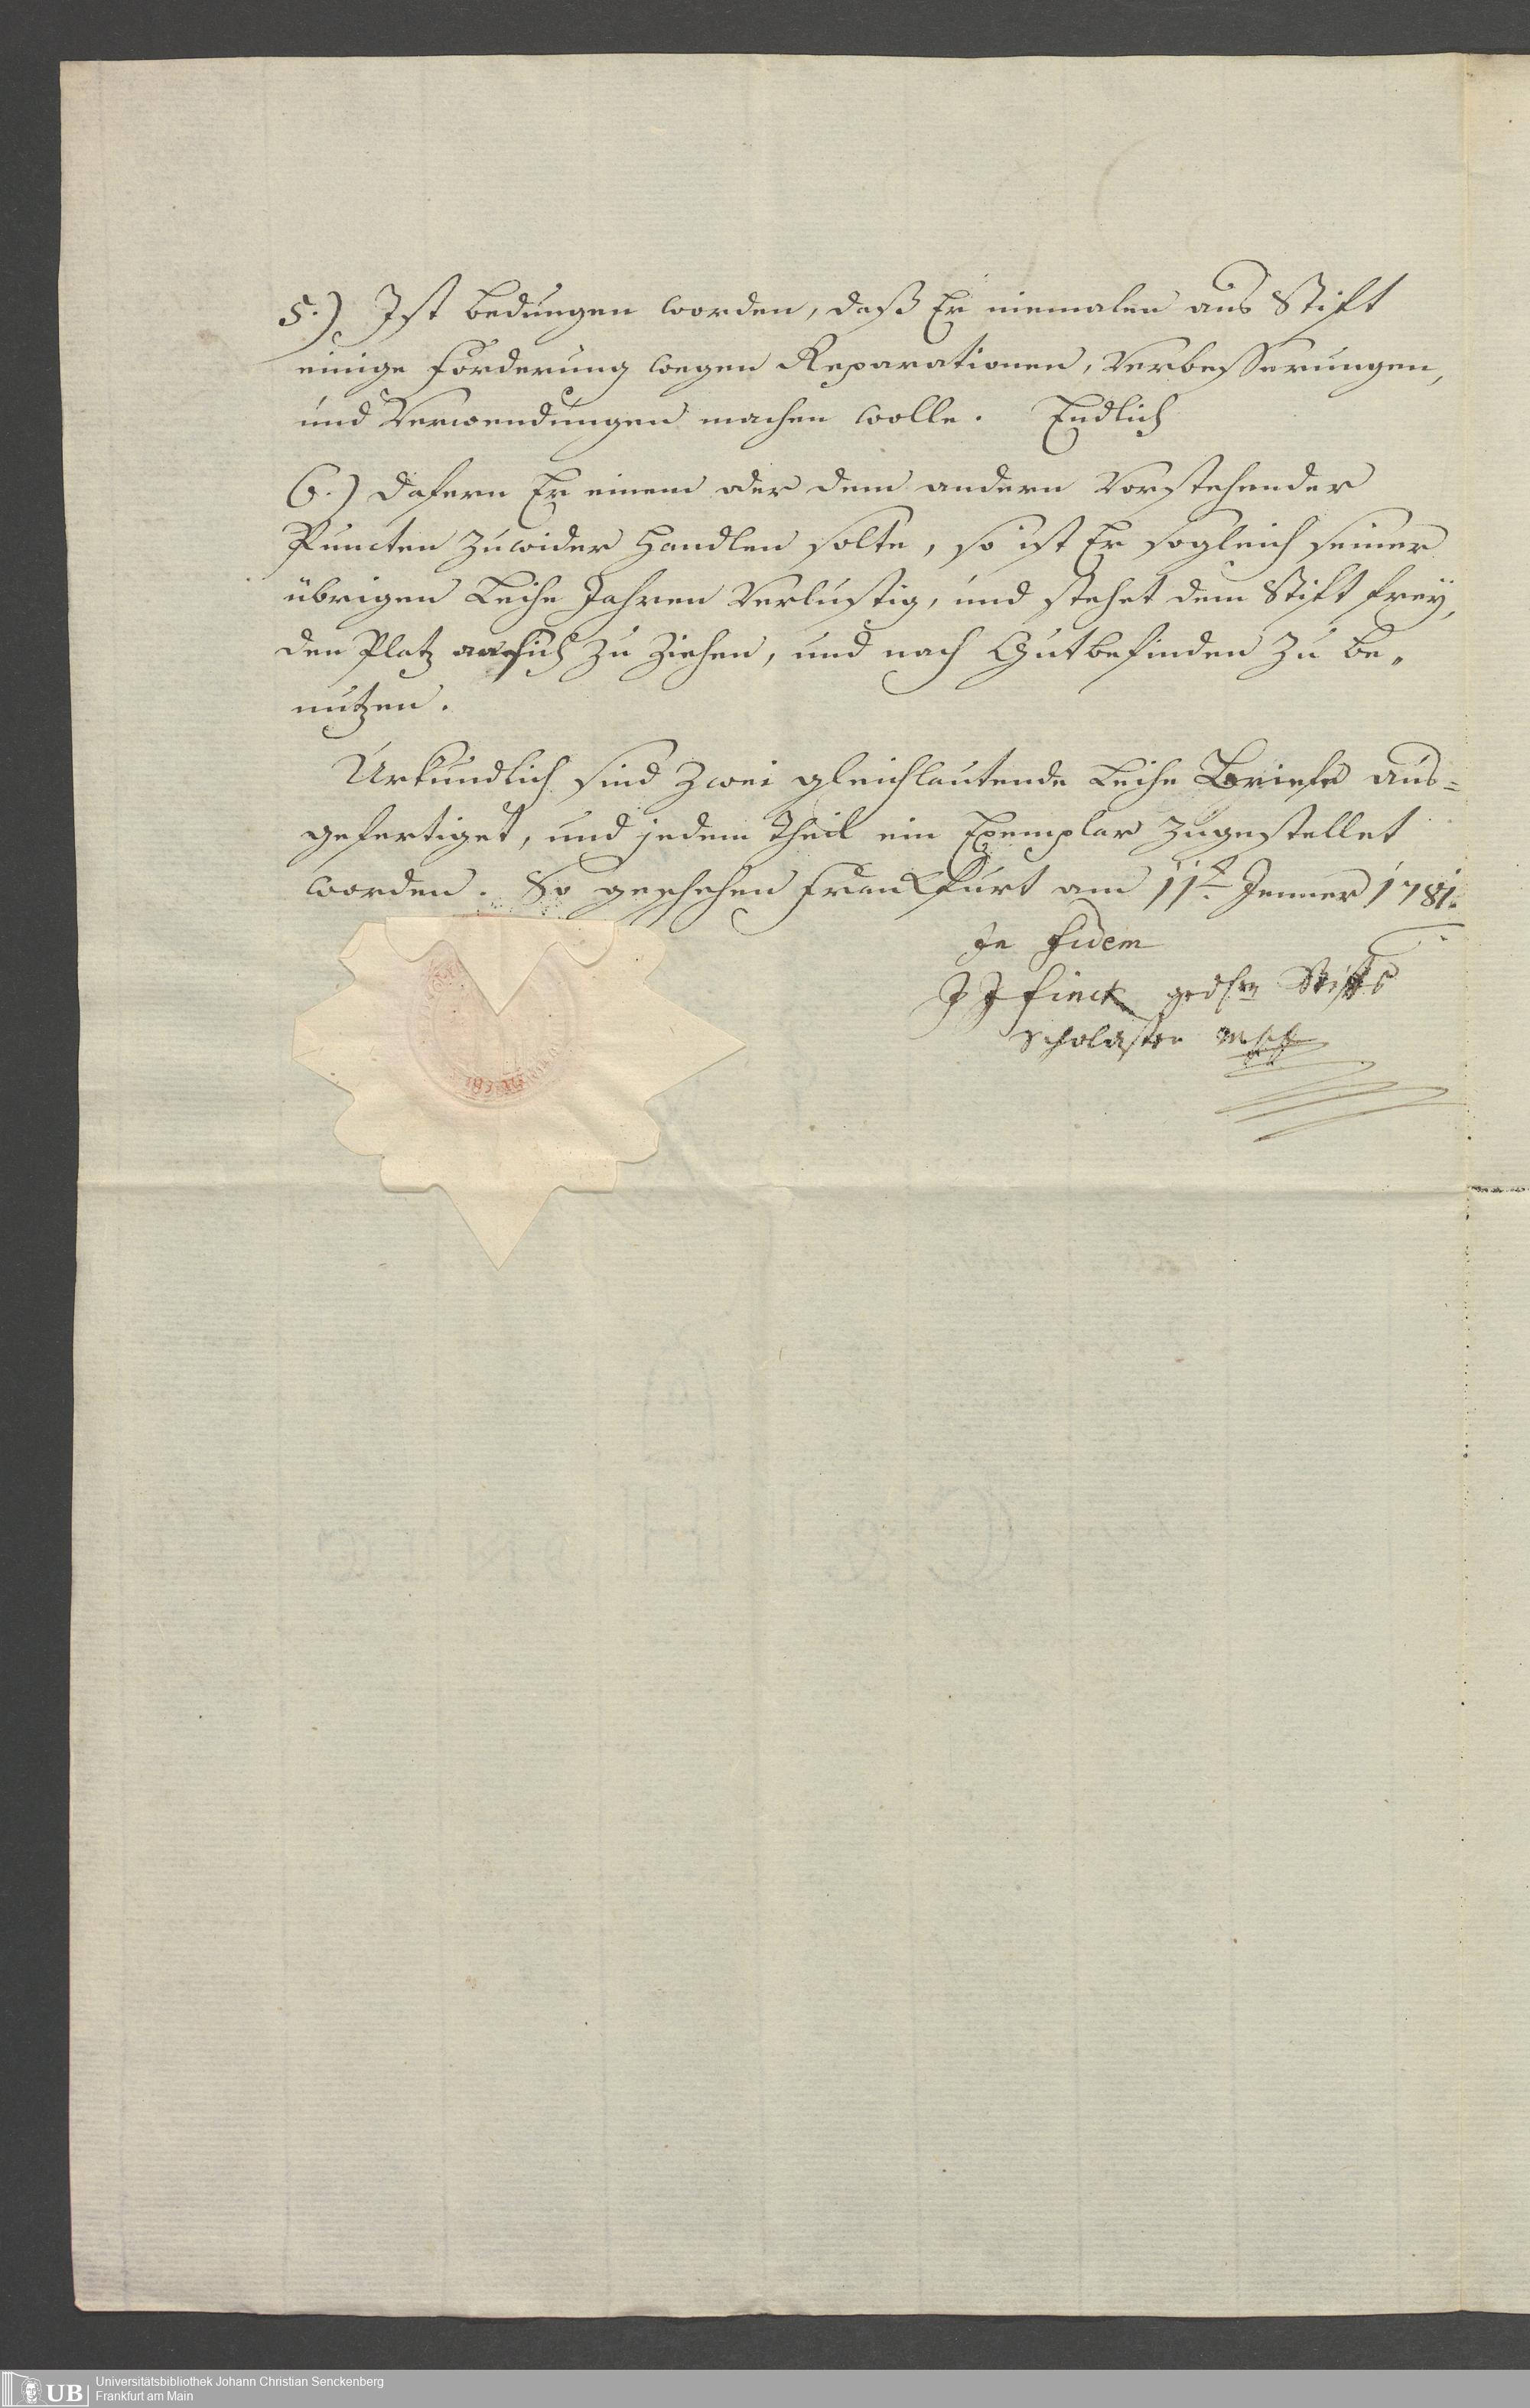 5.) Ist bedungen worden, daß Er niemalen ans Stift
einige Forderung wegen Reparationen, Verbesserungen,
und Verwendungen machen wolle. Endlich
6.) dafern Er einem oder dem andern Vorstehender
Puncten zuwider Handlen solte, so ist Er sogleich seiner
übrigen Leihe Jahren Verlustig, und stehet dem Stift freÿ,
den Platz an sich zu ziehen, und nach Gutbefinden zu be„
nutzen.
Urkundlich sind zwei gleichlautende Leihe Briefe aus=
gefertiget, und jedem Theil ein Exemplar zugestellet
worden. So geschehen Frankfurt am 11t. Jenner 1781.
In fidem
J J Finck Stifts
Scholaster
UB
Universitätsbibliothek Johann Christian Senckenberg
Frankfurt am Main